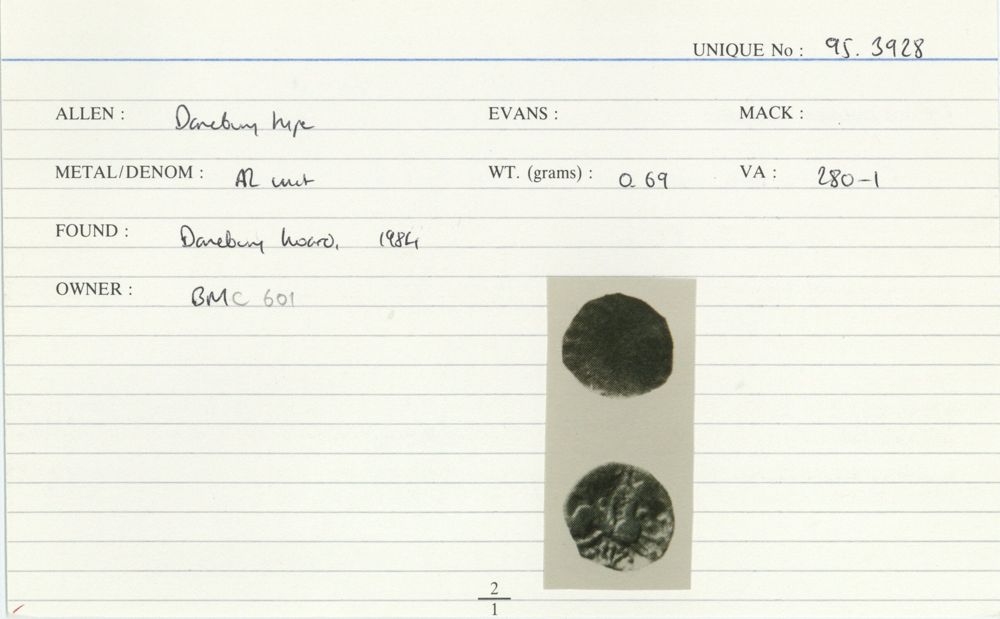 UNIQUE No : 95. 3928
ALLEN : Danebury type EVANS : MACK :
METAL/DENOM : AR unit WT. (grams) : 0.69 VA : 280-1
FOUND : Danebury hoard, 1984
OWNER : BMC 601
2
1